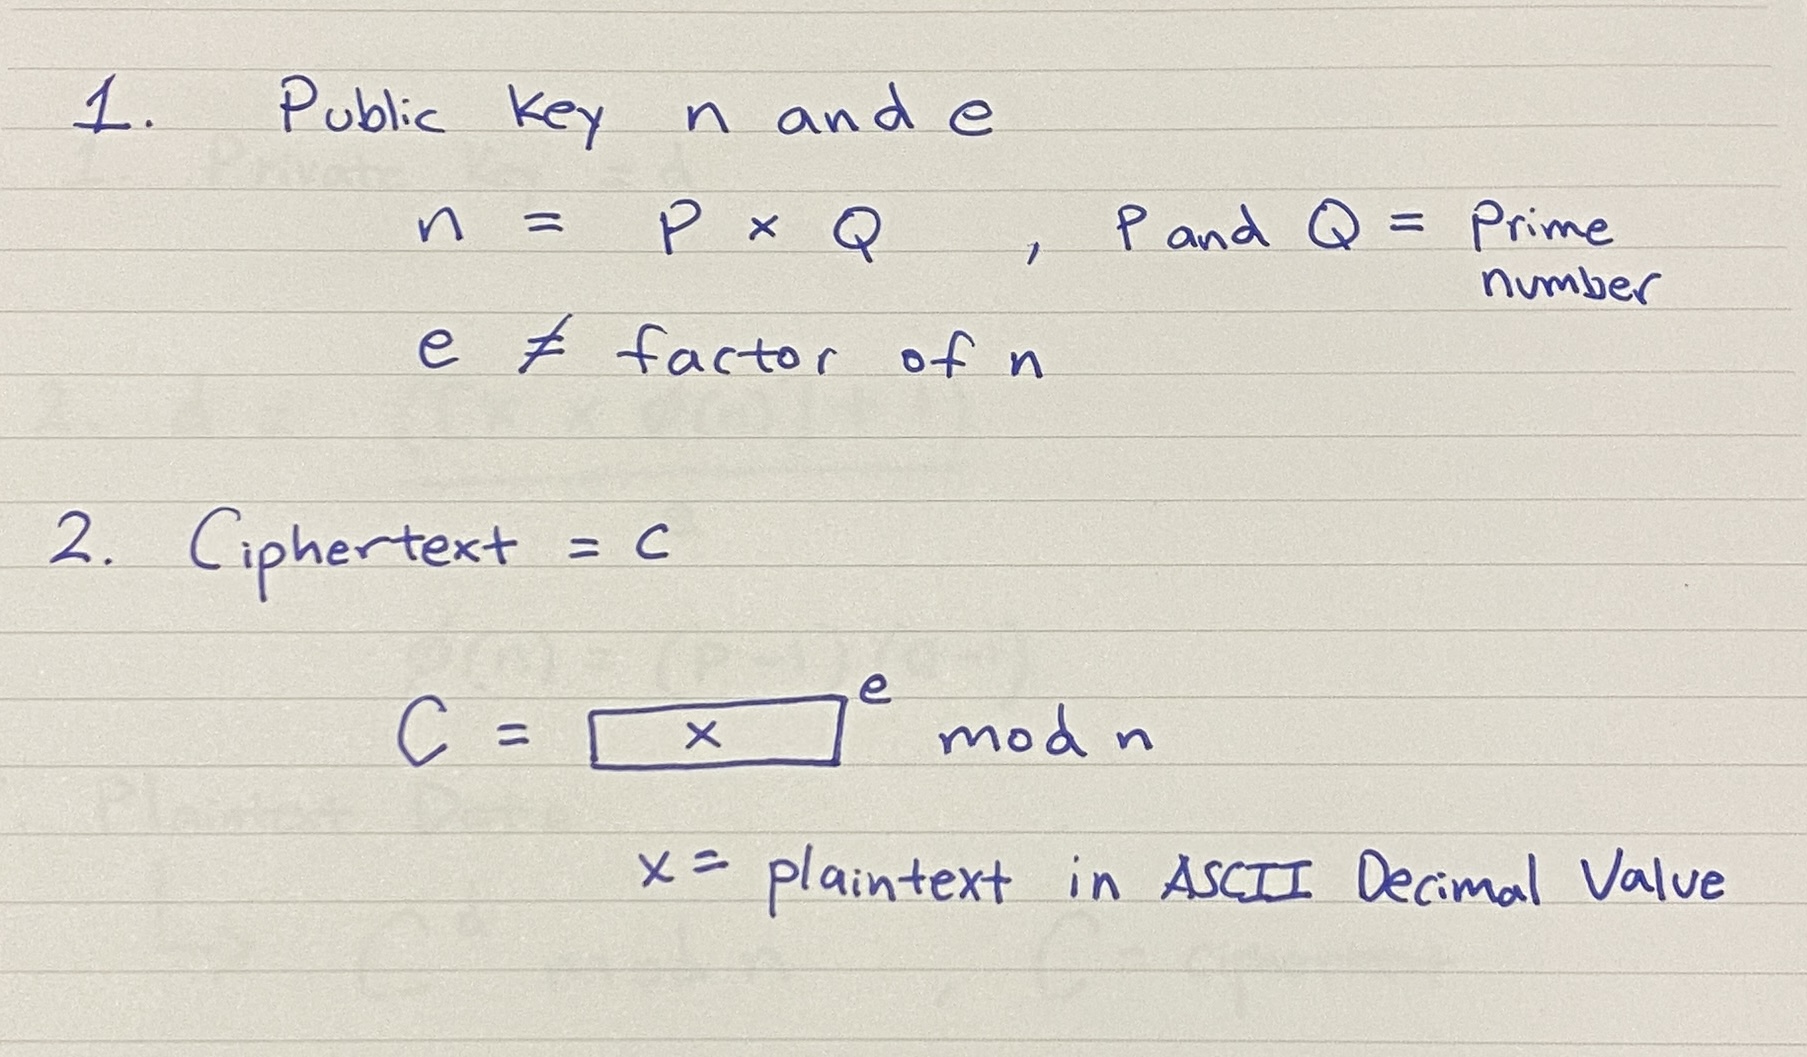 1. Public Key n and e
n = P × Q , P and Q = Prime
number
e ≠ factor of n
2. Ciphertext = c
C = x^e mod n
x = plaintext in ASCII Decimal Value